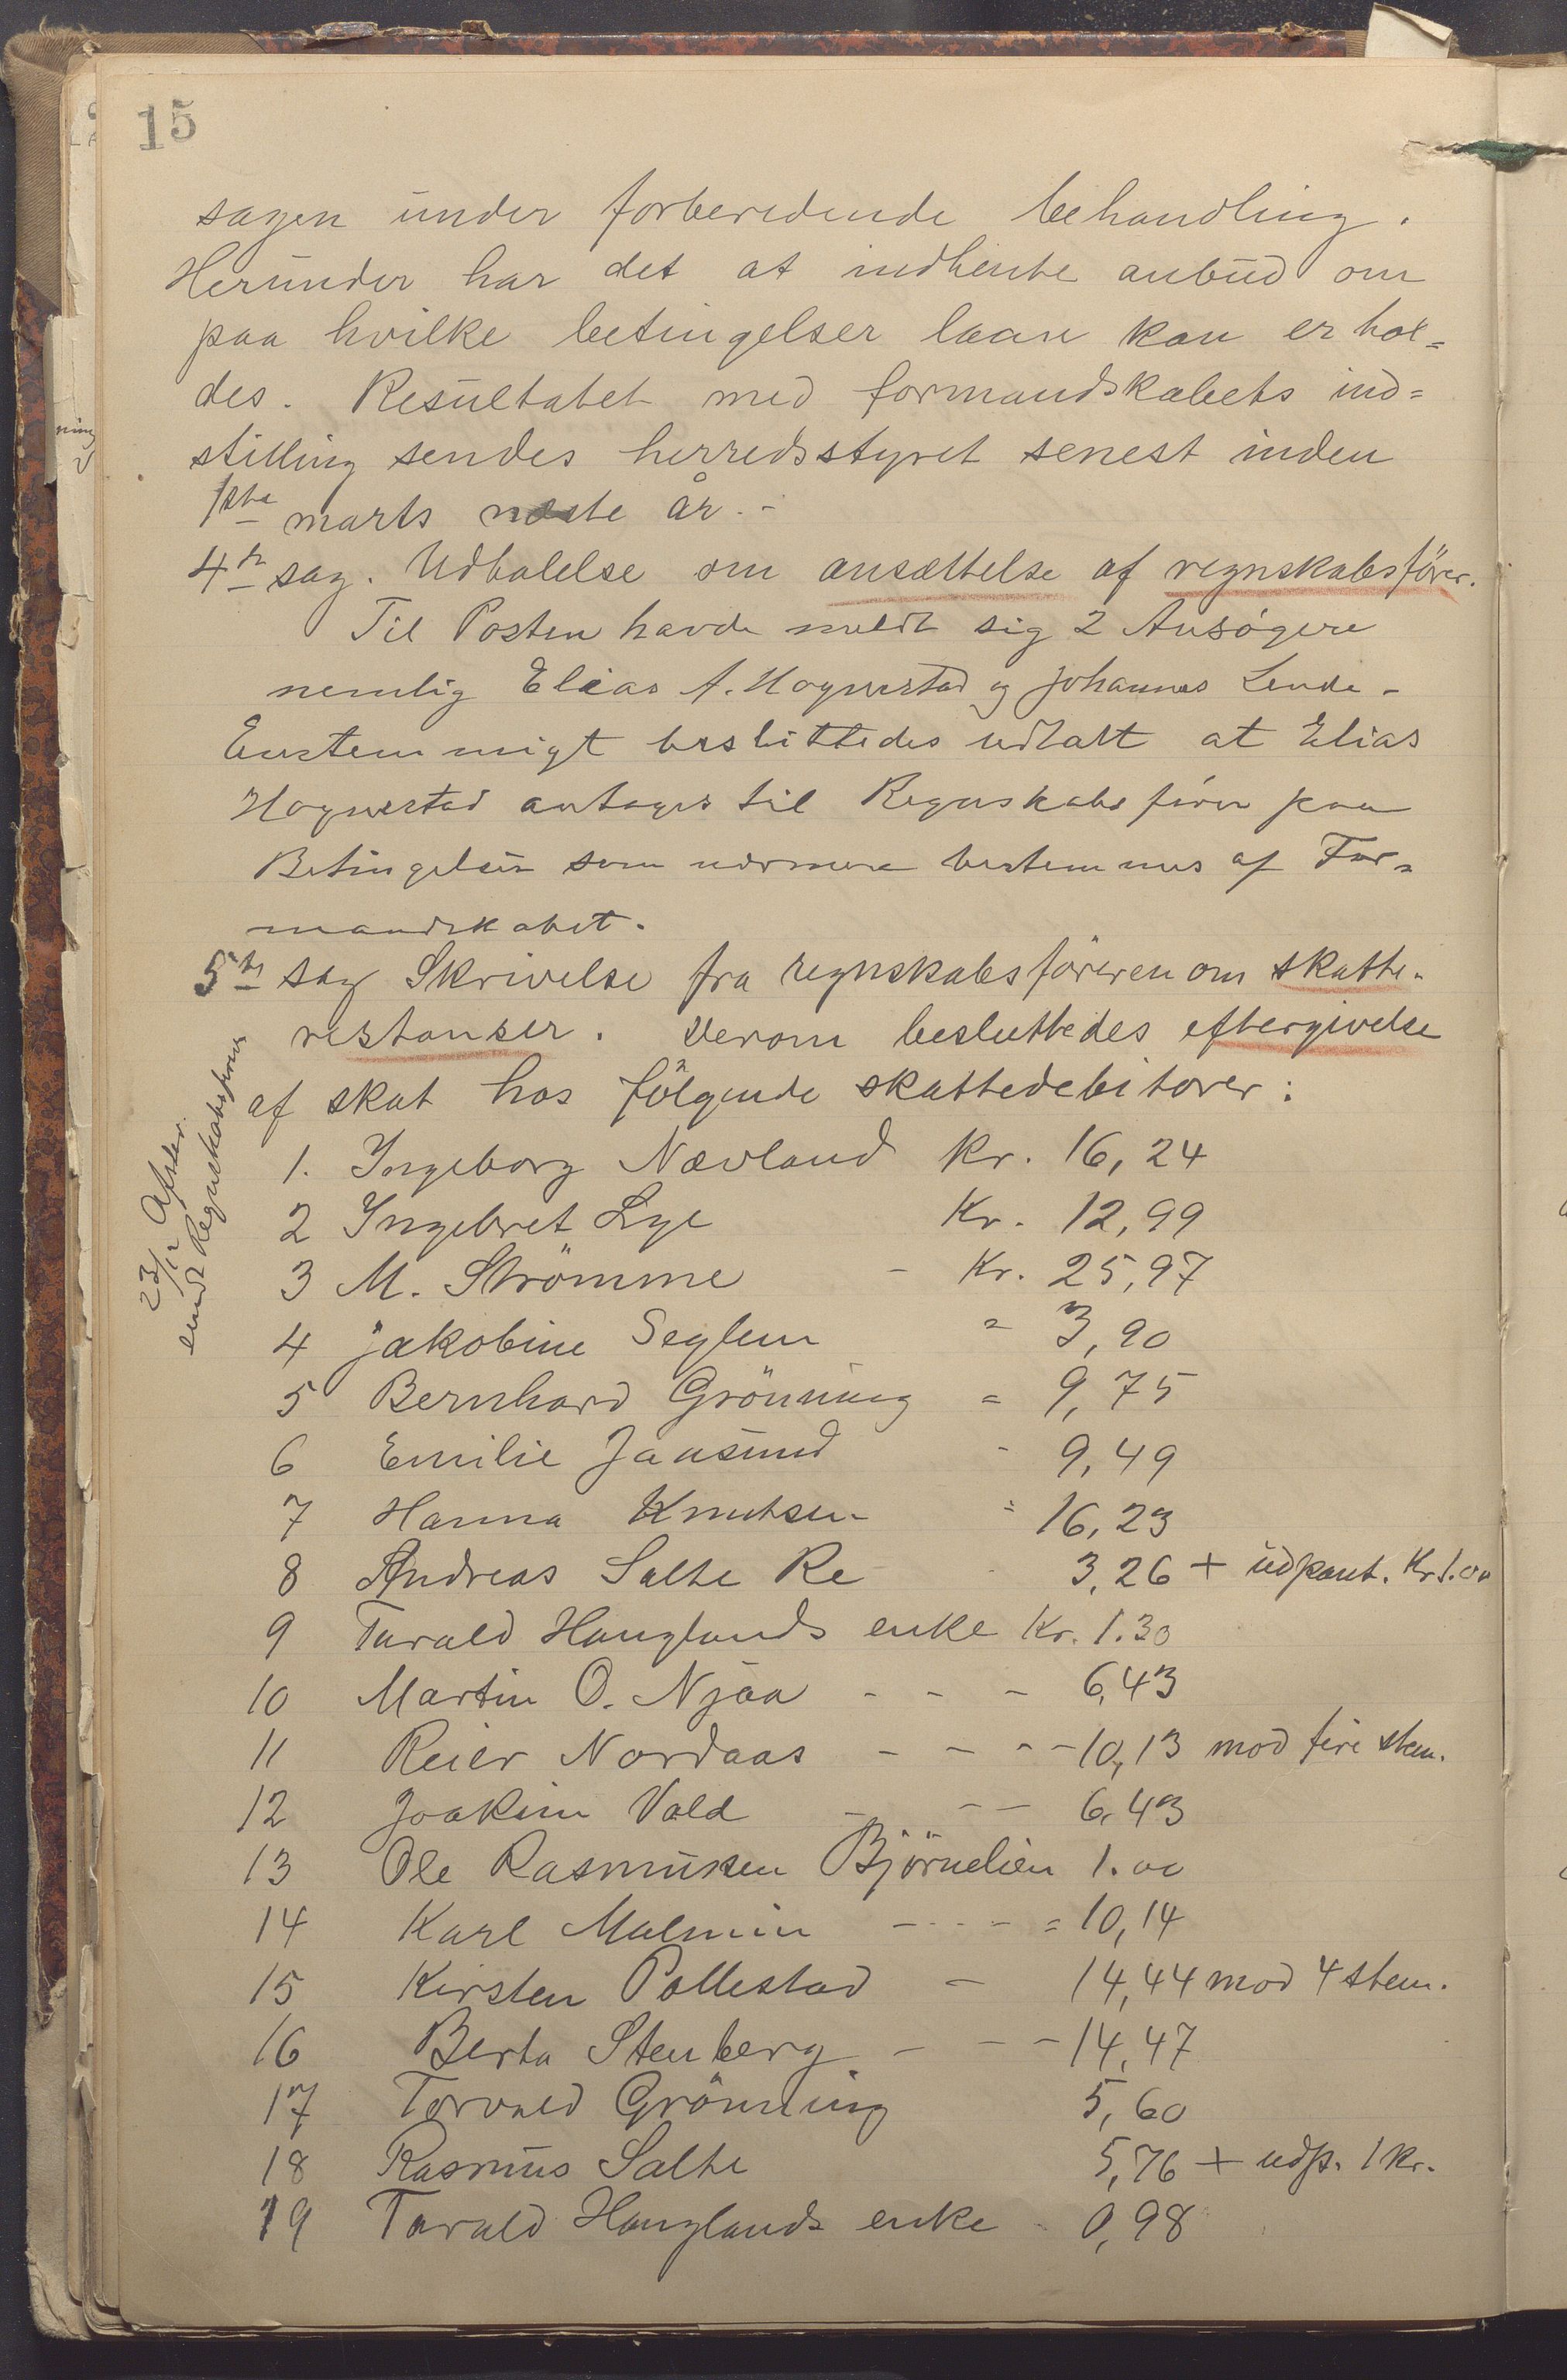 15
sagen under forberedende behandling.
Herunder har det at indhente anbud om
paa hvilke betingelser laan kan erhol=
des. Resultatet med formandskabets ind=
stilling sendes herredsstyret senest inden
1ste marts næste år. -
4de sag. Udtalelse om ansættelse af regnskabsförer.
Til Posten havde meldt sig 2 Ansøgere
nemlig Elias A. Hognestad og Johannes Lende -
Enstemmigt besluttedes udtalt at Elias
Hognestad antages til Regnskabsfører paa
Betingelser som nærmere bestemmes af For=
mandskabet.
5te sag Skrivelse fra regnskabsföreren om skatte-
restanser. Derom besluttedes eftergivelse
af skat hos fölgende skattedebitorer:
23/12 Afskr.
sendt Regnskabsfører
1. Ingeborg Nævland Kr. 16,24
2 Ingebret Lye Kr. 12,99
3 M. Strömme - Kr. 25,97
4 Jakobine Seglem " 3,90
5 Bernhard Grönning = 9,75
6 Emilie Jansund - 9,49
7 Hanna Knutsen " 16,23
8 Andreas Salte Re - 3,26 + udpant. Kr 1.00
9 Tarald Hauglands enke Kr. 1.30
10 Martin O. Njaa - - - 6,43
11 Reier Nordaas - - - - 10,13 mod fire stem.
12 Joakim Vold - - - 6,43
13 Ole Rasmussen Björnelien 1.00
14 Karl Malmin - - - - = 10,14
15 Kirsten Pollestad - 14,44 mod 4 stem.
16 Berta Stenberg - - - 14,47
17 Torvald Grönning 5,60
18 Rasmus Salte 5,76 + udp. 1 kr.
19 Tarald Hauglands enke - 0,98